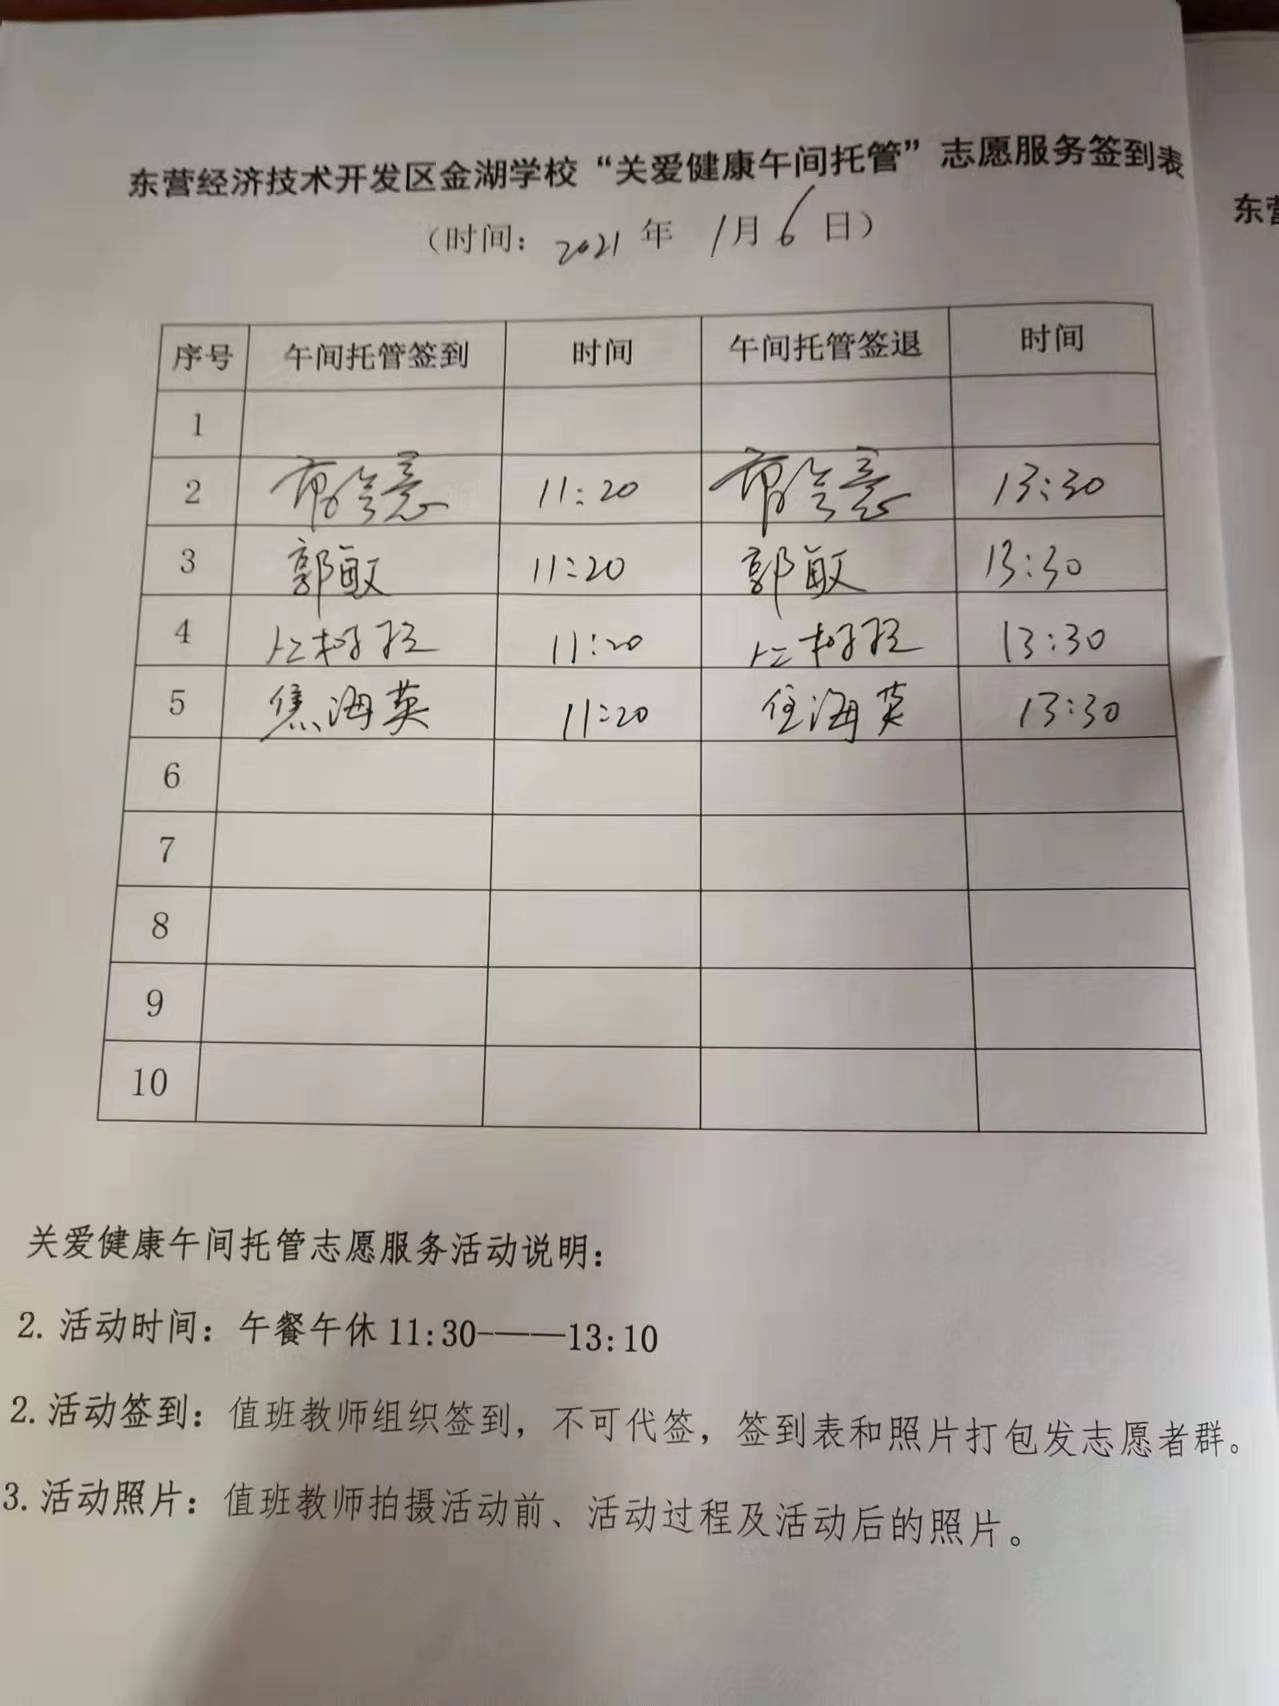 东营经济技术开发区金湖学校“关爱健康午间托管”志愿服务签到表
（时间：2021年 1月6日）
东营
序号 午间托管签到 时间 午间托管签退 时间
1
2 11:20 13:30
3 郭敏 11:20 郭敏 13:30
4 11:20 13:30
5 焦海英 11:20 海英 13:30
6
7
8
9
10
关爱健康午间托管志愿服务活动说明：
2. 活动时间：午餐午休 11:30-——13:10
2. 活动签到：值班教师组织签到，不可代签，签到表和照片打包发志愿者群。
3. 活动照片：值班教师拍摄活动前、活动过程及活动后的照片。